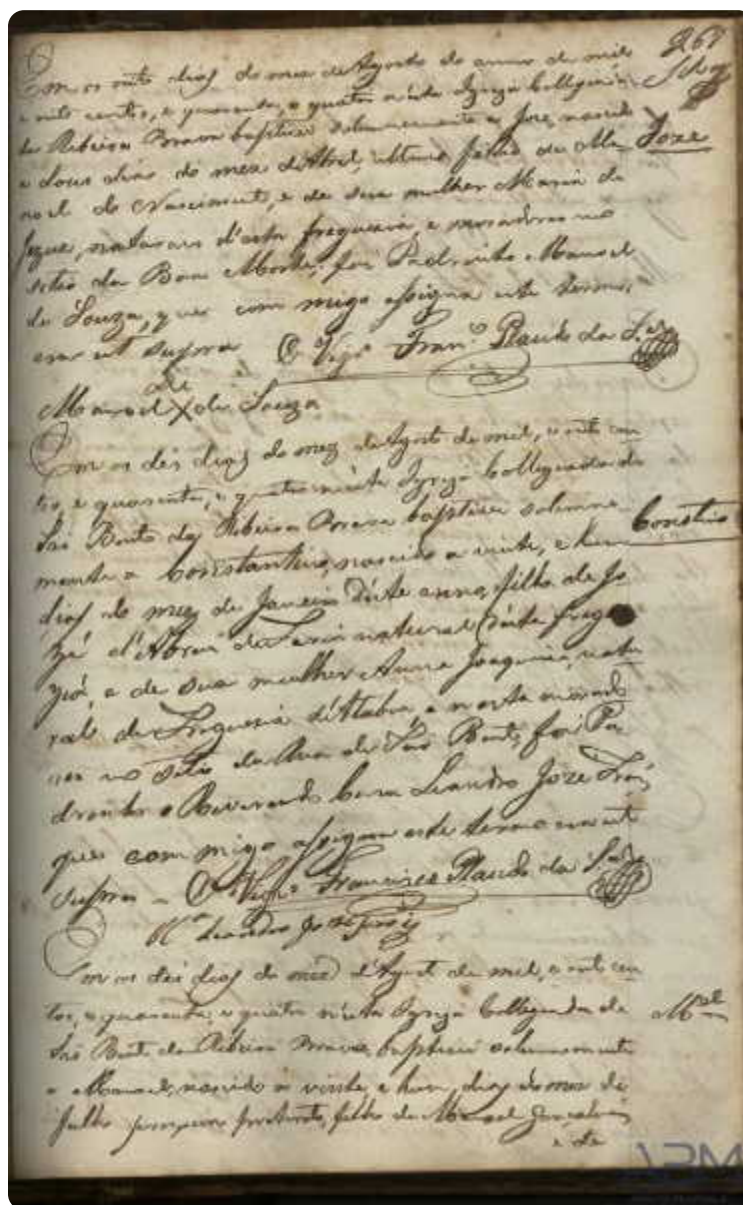 Em os oito dias do mez de Agosto do anno de mil
e oito centos, e quarenta, e quatro n'esta Igreja Collegiada
da Ribeira Brava baptizei solemnemente a Joze, nascido
Joze
a dous dias do mez d'Abril, ultimo filho de Ma-
noel do Nascimento, e de sua mulher Maria de
naturaes d'esta freguezia, e moradores no
sitio da Boa Morte, foi Padrinho Manoel
de Souza, que com migo assigna este termo,
era ut supra O Vigr.o Fran.co Placido da
Manoel X de Souza
Em os dés dias do mez de Agosto de mil, e oito cen
tos, e quarenta, e quatro n'esta Igreja Collegiada de
São Bento da Ribeira Brava baptizei solemne
mente a Constantino, nascido a vinte, e hum
Constno
dias do mez de Janeiro d'este anno, filho de Jo
zé d'Abreu de natural d'esta fregue
zia, e de sua mulher Anna Joaquina, natu
ral da Freguezia d'Atabua, e n'esta morado
res no sitio da Rua de São Bento, foi Pa
drinho o Reverendo Cura Leandro Joze
que com migo assigna este termo era ut
supra - O Vigr.o Francisco Placido da
Leandro Joze
Em os dés dias do mez d'Agosto de mil, e oito cen
tos, e quarenta, e quatro n'esta Igreja Collegiada de
M.el
São Bento da Ribeira Brava, baptizei solemnemente
a Manoel, nascido a vinte, e hum dias do mez de
Julho proximo preterito, filho de Manoel Gonçalves
e de
ARM